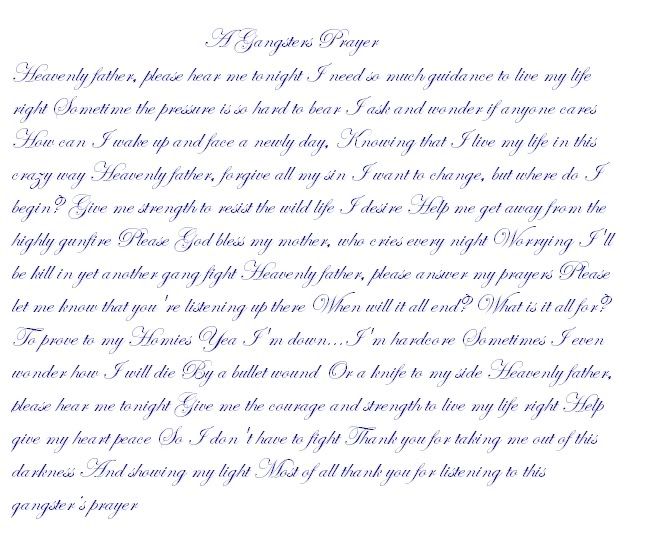 A Gangsters Prayer
Heavenly father, please hear me tonight I need so much guidance to live my life
right Sometime the pressure is so hard to bear I ask and wonder if anyone cares
How can I wake up and face a newly day, Knowing that I live my life in this
crazy way Heavenly father, forgive all my sin I want to change, but where do I
begin? Give me strength to resist the wild life I desire Help me get away from the
highly gunfire Please God bless my mother, who cries every night Worrying I'll
be kill in yet another gang fight Heavenly father, please answer my prayers Please
let me know that you're listening up there When will it all end? What is it all for?
To prove to my Homies Yea I'm down...I'm hardcore Sometimes I even
wonder how I will die By a bullet wound Or a knife to my side Heavenly father,
please hear me tonight Give me the courage and strength to live my life right Help
give my heart peace So I don't have to fight Thank you for taking me out of this
darkness And showing my light Most of all thank you for listening to this
gangster's prayer